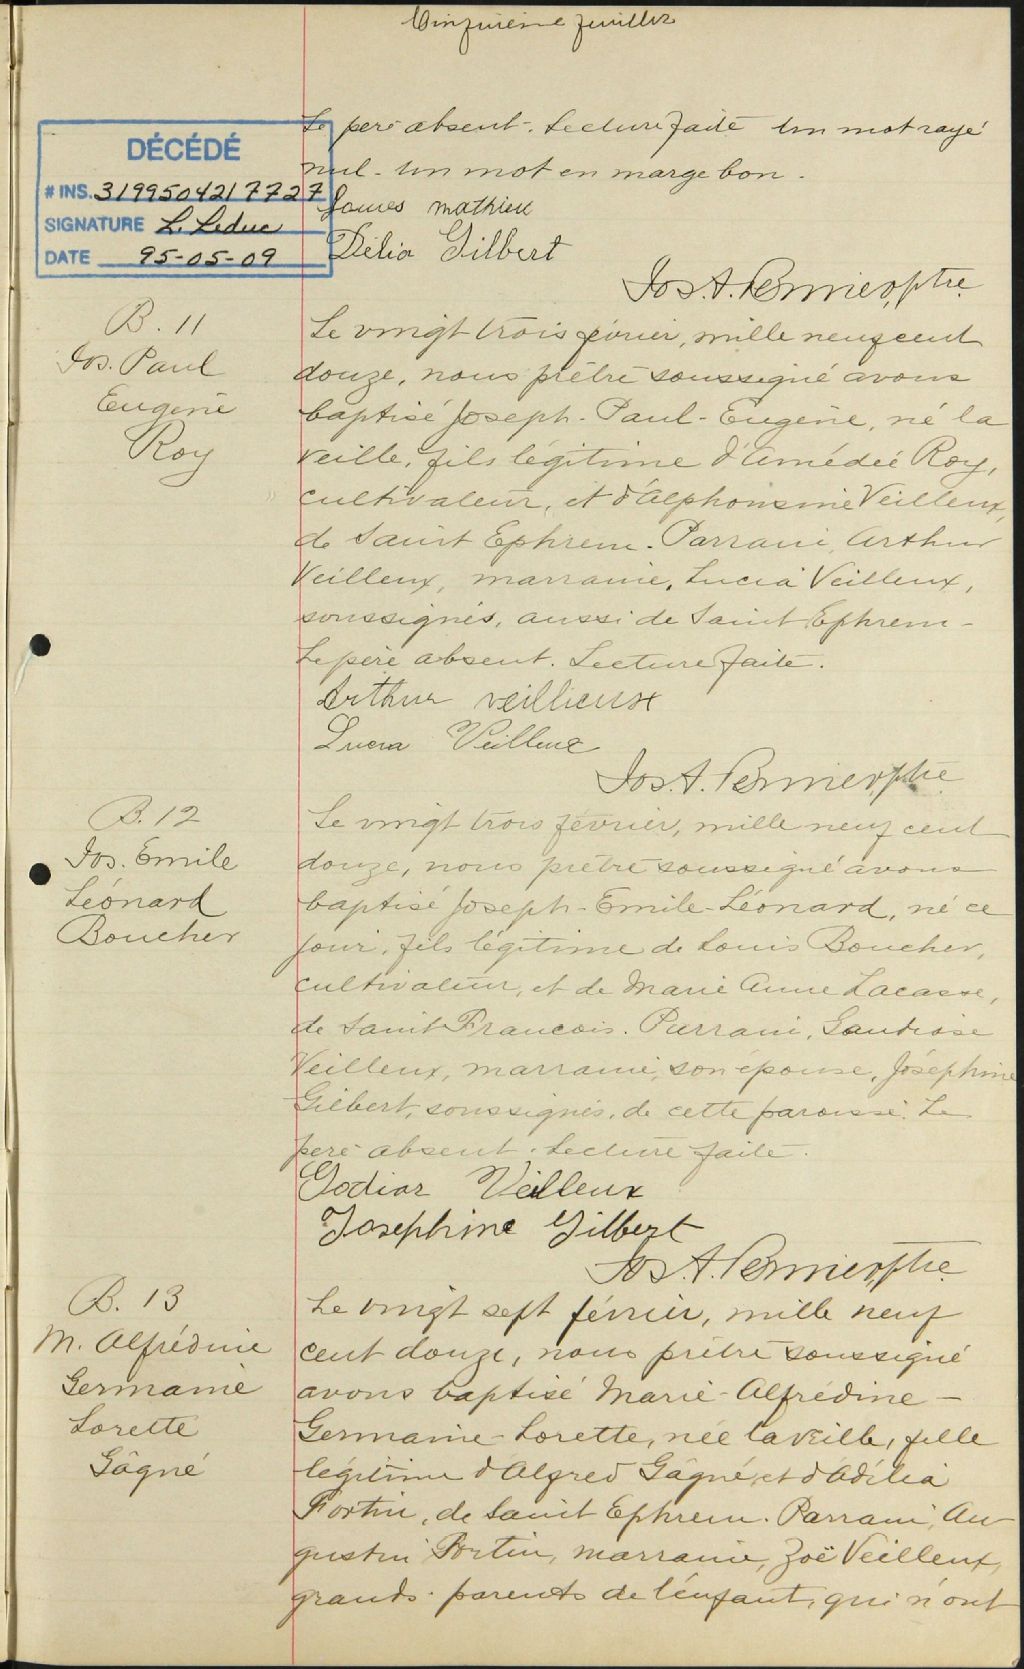 Cinquième feuillet
Le père absent. Lecture faite Un mot rayé
nul - un mot en marge bon.
DÉCÉDÉ
# INS. 3199504217727
SIGNATURE L. Leduc
DATE 95-05-09
James mathieu
Délia Gilbert
Jos. A. Bernier, ptre
B. 11
Jos. Paul
Eugène
Roy
Le vingt trois février, mille neuf cent
douze, nous prêtre soussigné avons
baptisé Joseph-Paul-Eugène, né la
veille, fils légitime d'Amédée Roy,
cultivateur, et d'Alphonsine Veilleux,
de Saint Ephrem. Parrain, Arthur
Veilleux, marraine, Lucia Veilleux,
soussignés, aussi de Saint Ephrem -
Le père absent. Lecture faite.
Arthur veillieux
Lucia Veilleux
Jos. A. Bernier, ptre
B. 12
Jos. Emile
Léonard
Boucher
Le vingt trois février, mille neuf cent
douze, nous prêtre soussigné avons
baptisé Joseph-Emile-Léonard, né ce
jour, fils légitime de Louis Boucher,
cultivateur, et de Marie Anne Lacasse,
de Saint François. Parrain, Gaudiose
Veilleux, marraine, son épouse, Joséphine
Gilbert, soussignés, de cette paroisse. Le
père absent. Lecture faite.
Godior Veilleux
Josephine Gilbert
Jos. A. Bernier, ptre
B. 13
M. Alfrédine
Germaine
Lorette
Gâgné
Le vingt sept février, mille neuf
cent douze, nous prêtre soussigné
avons baptisé Marie-Alfrédine-
Germaine-Lorette, née la veille, fille
légitime d'Alfred Gâgné, et d'Adélia
Fortin, de Saint Ephrem. Parrain, Au-
gustin Fortin, marraine, Zoë Veilleux,
grands-parents de l'enfant, qui n'ont